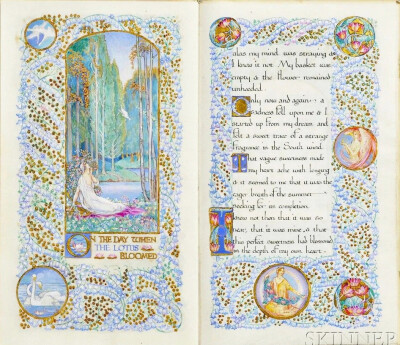 ON THE DAY WHEN
THE LOTUS
BLOOMED
alas my mind was straying &
I knew it not. My basket was
empty & the flower remained
unheeded.
Only now and again a
sadness fell upon me & I
started up from my dream and
felt a sweet trace of a strange
fragrance in the South wind.
That vague sweetness made
my heart ache with longing
& it seemed to me that it was the
eager breath of the summer
seeking for its completion.
I knew not then that it was so
near, that it was mine & that
this perfect sweetness had blossomed
in the depth of my own heart.
SKINNER